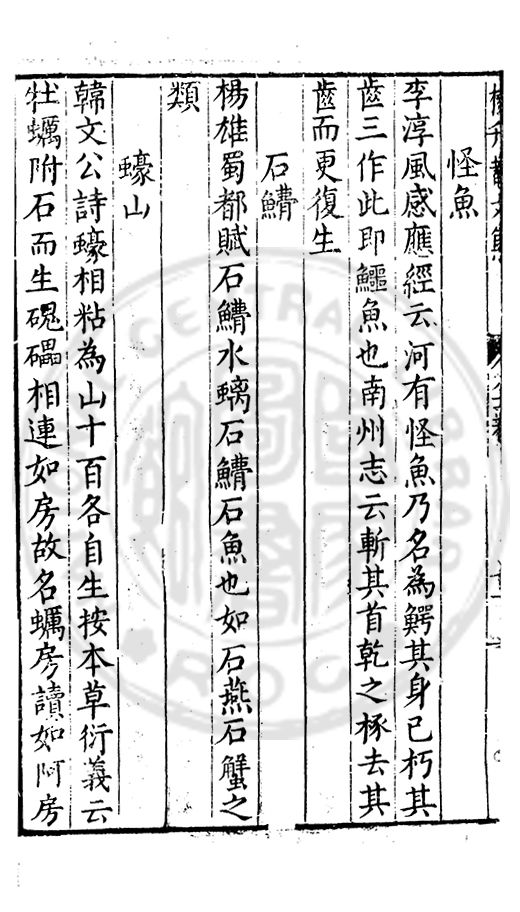 怪魚
李淳風感應經云河有怪魚乃名為鰐其身已朽其
齒三作此即鱷魚也南州志云斬其首乾之椓去其
齒而更復生
石鰽
楊雄蜀都賦石鰽水螭石鰽石魚也如石燕石蟹之
類
蠔山
韓文公詩蠔相粘為山十百各自生按本草衍義云
牡蠣附石而生磈礧相連如房故名蠣房讀如阿房